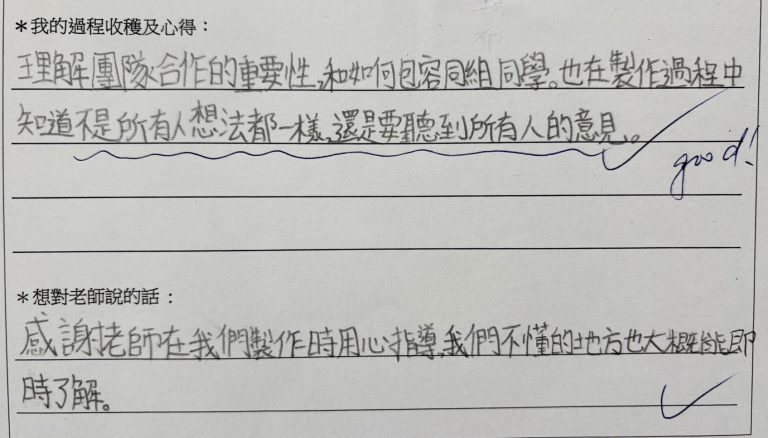 *我的過程收穫及心得：
理解團隊合作的重要性，和如何包容同組同學。也在製作過程中
知道不是所有人想法都一樣，還是要聽到所有人的意見。
good!
*想對老師說的話：
感謝老師在我們製作時用心指導，我們不懂的地方也大概能即
時了解。